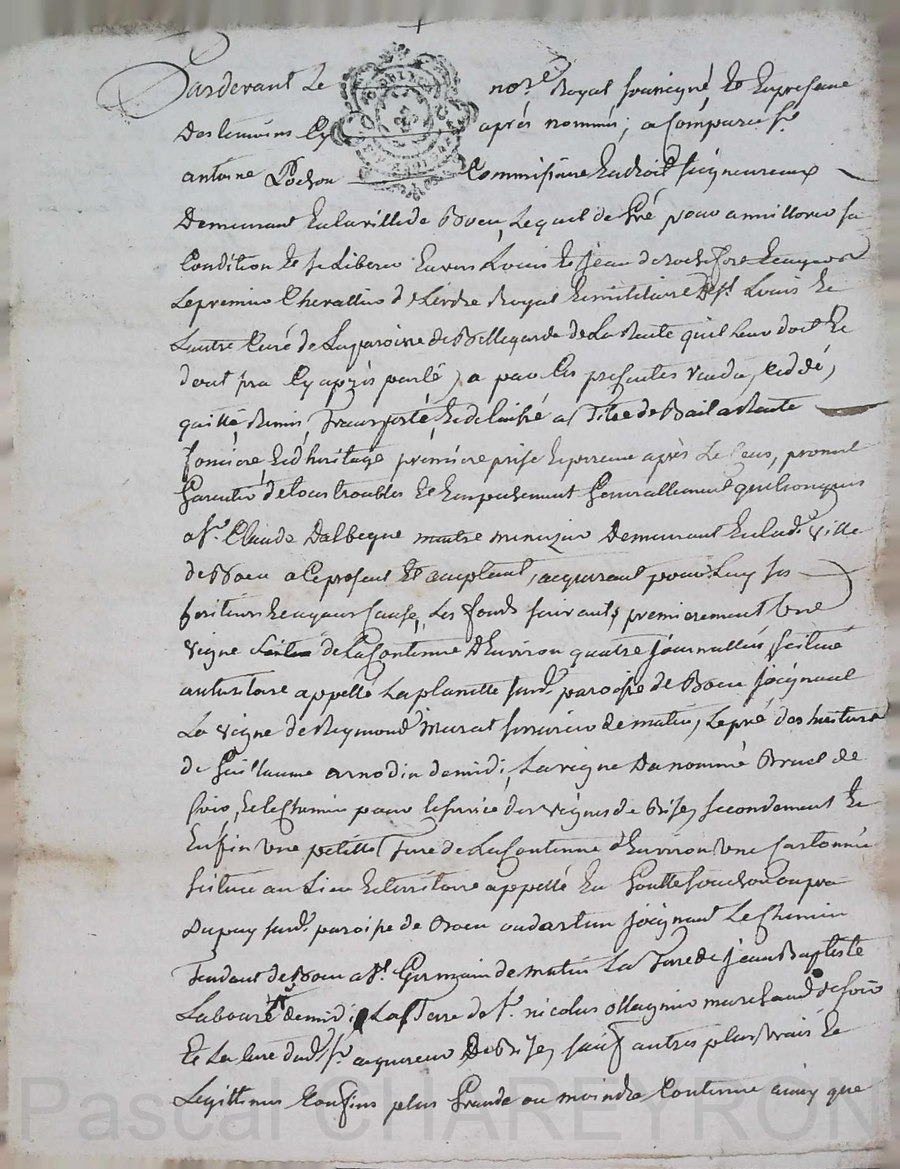 Pardevant Le nore Royal soussigné Et En presence
Des temoins Cy après nommés, a Comparu Sr
antoine Pochon Commissaire En droit seigneuriaux
Demeurant En la ville de Boen, Lequel de Gré pour ameillorer sa
Condition Et se Liberer Envers Louis Et jean de rochefort Ecuyers
Le premier Chevallier de L'ordre Royal Et militaire de St Louis Et
Lautre Curé de La paroisse de Bellegarde de La Rente quil Leur doit Et
dont sera Cy après parlé, a par Ces presentes vendu, Ceddé,
quitté Remis, Transporté, Et delaissé a Titre de Bail a Rente
fonciere, Et d'heritage premiere prise Et perceue après Le Cens, promet
Garentir de tous troubles Et Empechement Generallement quelconques
a Sr Claude Dalbegue maitre menuzier Demeurant En lad. ville
de Boen a Ce present Et acceptant, acquerant pour Luy ses
heritiers Et ayans Cause, Les fonds suivants, premierement Une
vigne de La Contenue D'Environ quatre journallées, scituée
au territoire appellé La planette susd. paroisse de Boen joignant
La vigne de Reymond Murat serrurier de matin, Le pré des heritiers
de Guillaume arnodin de midi, La vigne Du nommé Brunel de
soir, Et Le Chemin pour le service des vignes de Bise, secondement Et
Enfin Une petitte Terre de La Contenue d'Environ Une Cartonnée
scituée au Lieu Et territoire appellé En Goutte
Dupuy susd. paroisse de Boen joignant Le Chemin
Tendant de Boen a St Germain de matin La Terre de jean Baptiste
Labouré de midi, La Terre de Sr nicolas ollagnier marchand de soir
Et La Terre dud. Sr acquereur De Bise, sauf autres plus vrais Et
Legittimes Confins plus Grande ou moindre Contenue ainsy que
Pascal CHAREYRON